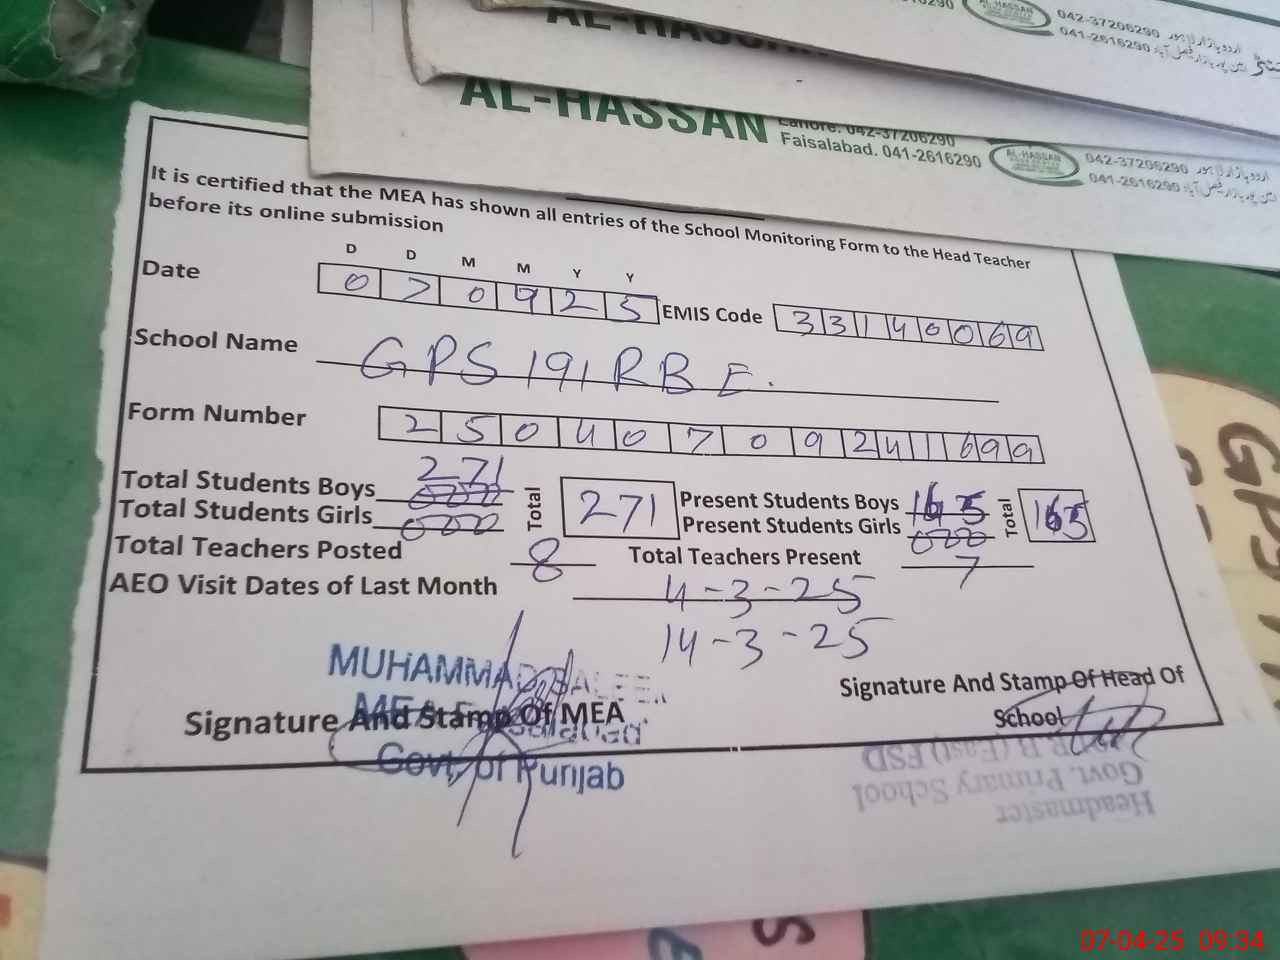 AL-HASSAN
042-37206290
041-2616290
AL-HASSAN Lahore. 042-37206290
Faisalabad. 041-2616290
AL-HASSAN
042-37206290
041-2616290
It is certified that the MEA has shown all entries of the School Monitoring Form to the Head Teacher
before its online submission
D D M M Y Y
Date 0 7 0 4 2 5 EMIS Code 3 3 1 4 0 0 6 9
School Name GPS 191 RB E.
Form Number 2 5 0 4 0 7 0 9 2 4 1 6 9 9
Total Students Boys 271 Total 271 Present Students Boys 165 Total 165
Total Students Girls 000 Present Students Girls 000
Total Teachers Posted 8 Total Teachers Present 7
AEO Visit Dates of Last Month 4-3-25
14-3-25
MUHAMMAD
MEA
Signature And Stamp Of MEA
Govt. of Punjab
Signature And Stamp Of Head Of
School
R.B (East) FSD
Govt. Primary School
Headmaster
07-04-25 09:34